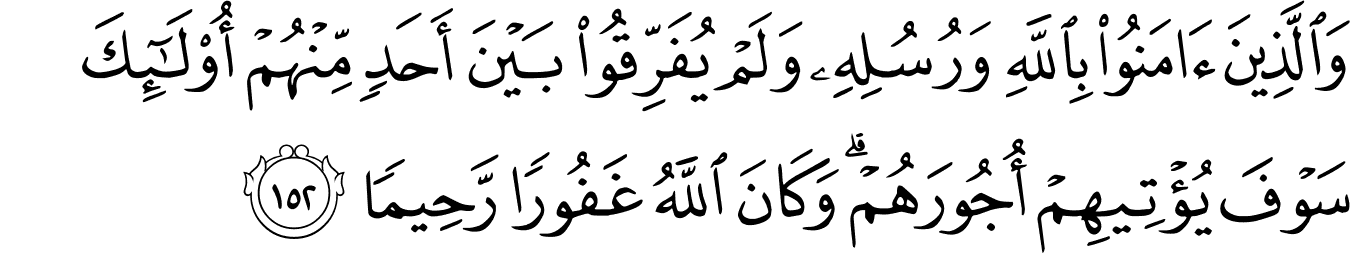 وَٱلَّذِينَ ءَامَنُوا۟ بِٱللَّهِ وَرُسُلِهِۦ وَلَمْ يُفَرِّقُوا۟ بَيْنَ أَحَدٍ مِّنْهُمْ أُو۟لَـٰٓئِكَ
سَوْفَ يُؤْتِيهِمْ أُجُورَهُمْ ۗ وَكَانَ ٱللَّهُ غَفُورًا رَّحِيمًا ١٥٢